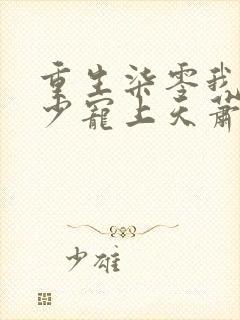 重生柒零我
少寵上天蕭
少雄